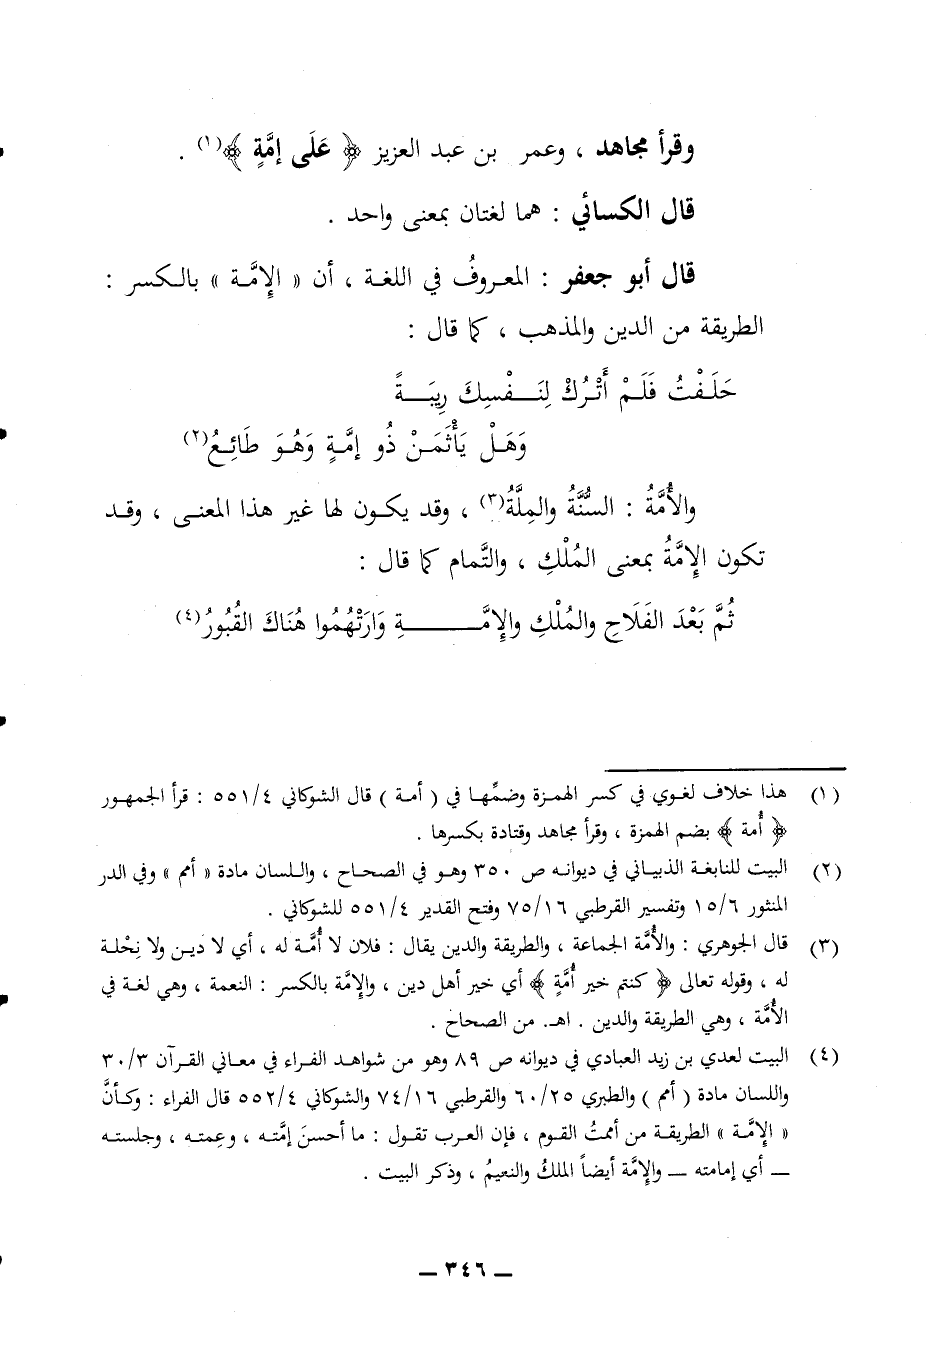 وقرأ مجاهد ، وعمر بن عبد العزيز ﴿ عَلَى إمَّةٍ ﴾(١) .
قال الكسائي : هما لغتان بمعنى واحد .
قال أبو جعفر : المعروفُ في اللغة ، أن « الإِمَّة » بالكسر :
الطريقة من الدين والمذهب ، كما قال :
حَلَفْتُ فَلَمْ أَتْرُكْ لِنَفْسِكَ رِيبَةً
وَهَلْ يَأْثَمَنْ ذُو إمَّةٍ وَهُوَ طَائِعُ(٢)
والأُمَّةُ : السُّنَّةُ والمِلَّةُ(٣) ، وقد يكون لها غير هذا المعنى ، وقد
تكون الإِمَّةُ بمعنى المُلْكِ ، والتَّمام كما قال :
ثُمَّ بَعْدَ الفَلَاحِ والمُلْكِ والإِمَّـةِ وَارَتْهُمُوا هُنَاكَ القُبُورُ(٤)
(١) هذا خلاف لغوي في كسر الهمزة وضمِّها في ( أمة ) قال الشوكاني ٥٥١/٤ : قرأ الجمهور
﴿ أُمة ﴾ بضم الهمزة ، وقرأ مجاهد وقتادة بكسرها .
(٢) البيت للنابغة الذبياني في ديوانه ص ٣٥٠ وهو في الصحاح ، واللسان مادة « أمم » وفي الدر
المنثور ١٥/٦ وتفسير القرطبي ٧٥/١٦ وفتح القدير ٥٥١/٤ للشوكاني .
(٣) قال الجوهري : والأُمَّة الجماعة ، والطريقة والدين يقال : فلان لا أُمَّة له ، أي لا دين ولا نِحْلة
له ، وقوله تعالى ﴿ كنتم خير أُمَّةٍ ﴾ أي خير أهل دين ، والإِمَّة بالكسر : النعمة ، وهي لغة في
الأُمَّة ، وهي الطريقة والدين . اهـ. من الصحاح .
(٤) البيت لعدي بن زيد العبادي في ديوانه ص ٨٩ وهو من شواهد الفراء في معاني القرآن ٣٠/٣
واللسان مادة ( أمم ) والطبري ٦٠/٢٥ والقرطبي ٧٤/١٦ والشوكاني ٥٥٢/٤ قال الفراء : وكأنَّ
« الإِمَّة » الطريقة من أممتُ القوم ، فإن العرب تقول : ما أحسنَ إمَّته ، وعِمته ، وجلسته
ــ أي إمامته ــ والإِمَّة أيضاً الملكُ والنعيمُ ، وذكر البيت .
ــ ٣٤٦ ــ